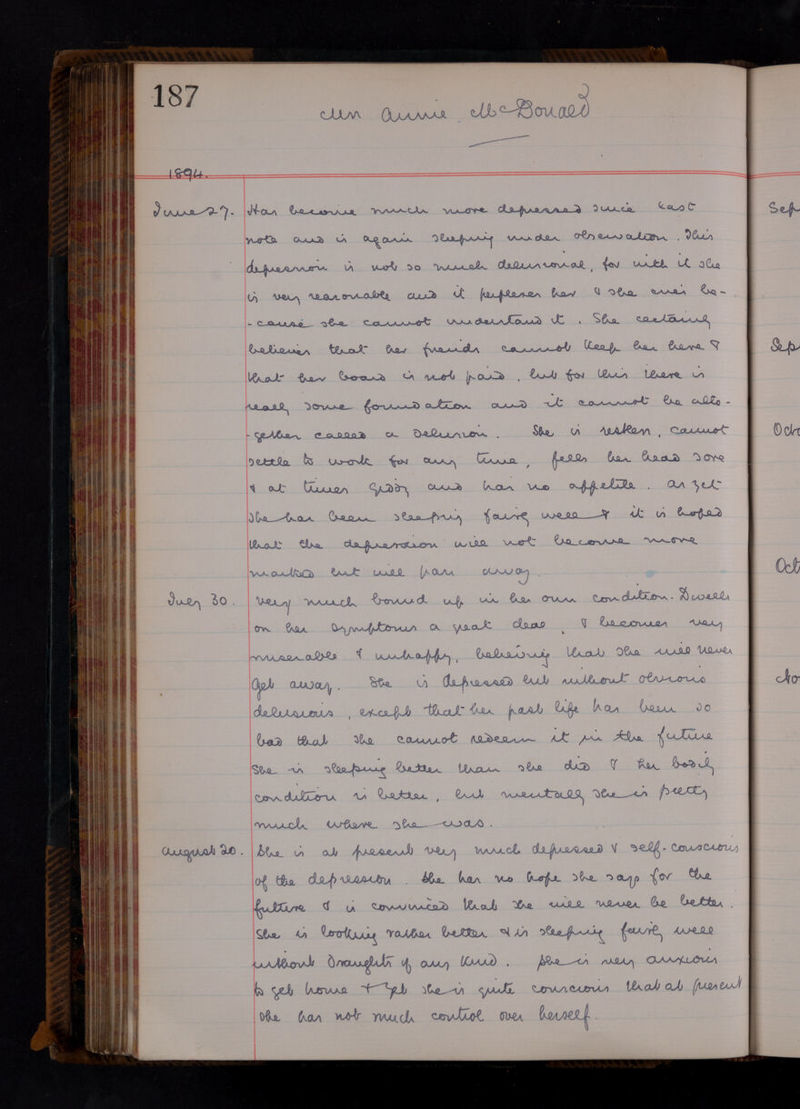 187
Mrs Annie McDonald
1894.
June 27. Has become much more depressed since last
note and is again sleeping under observation. This
depression is not so much delusional, for with it she
is very reasonable and it perplexes her & she cries be-
-cause she cannot understand it. She certainly
believes that her friends cannot keep her here &
that her board is not paid, but for this there is
really some foundation and it cannot be alto-
-gether called a delusion. She is restless, cannot
settle to work for any time, feels her head sore
& at times giddy and has no appetite. As yet
she has been sleeping fairly well & it is hoped
that the depression will not become more
marked but will pass away.
July 30. Very much bound up in her own condition. Dwells
on her symptoms a great deal, & becomes very
miserable & unhappy, believing that she will never
get away. She is depressed but without obvious
delusions, except that her past life has been so
bad that she cannot redeem it in the future
She is sleeping better than she did & her bodily
condition is better, but mentally she is pretty
much where she was.
August 20. She is at present very much depressed & self-conscious
of the depression. She has no hope she says for the
future & is convinced that she will never be better.
She is looking rather better & is sleeping fairly well
without draughts of any kind. She is very anxious
to get home & yet she is quite conscious that at present
she has not much control over herself.
Sep
Sep
Oct
Oct
No